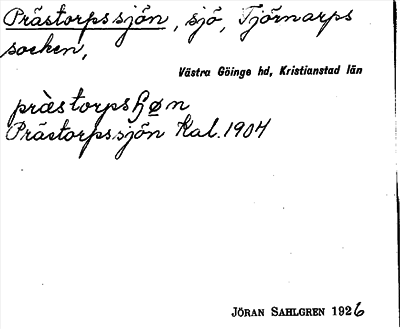 Prästorpssjön, sjö, Tjörnarps
socken,
Västra Göinge hd, Kristianstad län
Prästorpssjön Kal. 1904
JÖRAN SAHLGREN 1926